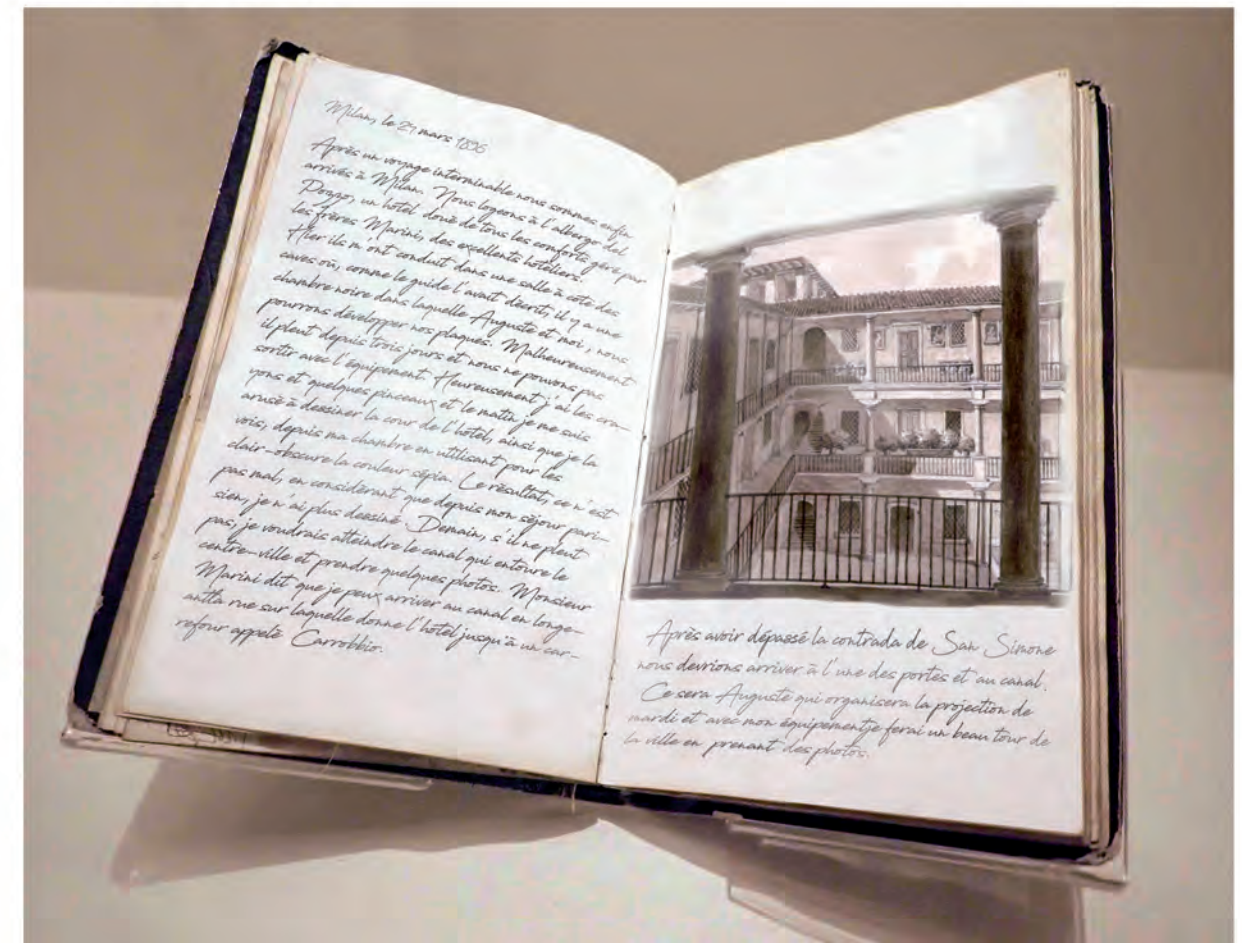 Milan, le 21 mars 1896
Après un voyage interminable nous sommes enfin
arrivés à Milan. Nous logeons à l'albergo del
Pozzo, un hôtel doué de tous les comforts géré par
les frères Marini, des excellents hôteliers.
Hier ils m'ont conduit dans une salle à côté des
caves où, comme le guide l'avait décrit, il y a une
chambre noire dans laquelle Auguste et moi, nous
pourrons développer nos plaques. Malheureusement
il pleut depuis trois jours et nous ne pouvons pas
sortir avec l'équipement. Heureusement j'ai les cra-
yons et quelques pinceaux et le matin je me suis
amusé à dessiner la cour de l'hôtel, ainsi que je la
vois, depuis ma chambre en utilisant pour les
clair-obscure la couleur sépia. Le résultat, ce n'est
pas mal, en considérant que depuis mon séjour pari-
sien, je n'ai plus dessiné. Demain, s'il ne pleut
pas, je voudrais atteindre le canal qui entoure le
centre-ville et prendre quelques photos. Monsieur
Marini dit que je peux arriver au canal en longe-
antla rue sur laquelle donne l'hôtel jusqu'à un car-
refour appelé Carrobbio.
Après avoir dépassé la contrada de San Simone
nous devrions arriver à l'une des portes et au canal.
Ce sera Auguste qui organisera la projection de
mardi et avec mon équipementje ferai un beau tour de
la ville en prenant des photos.